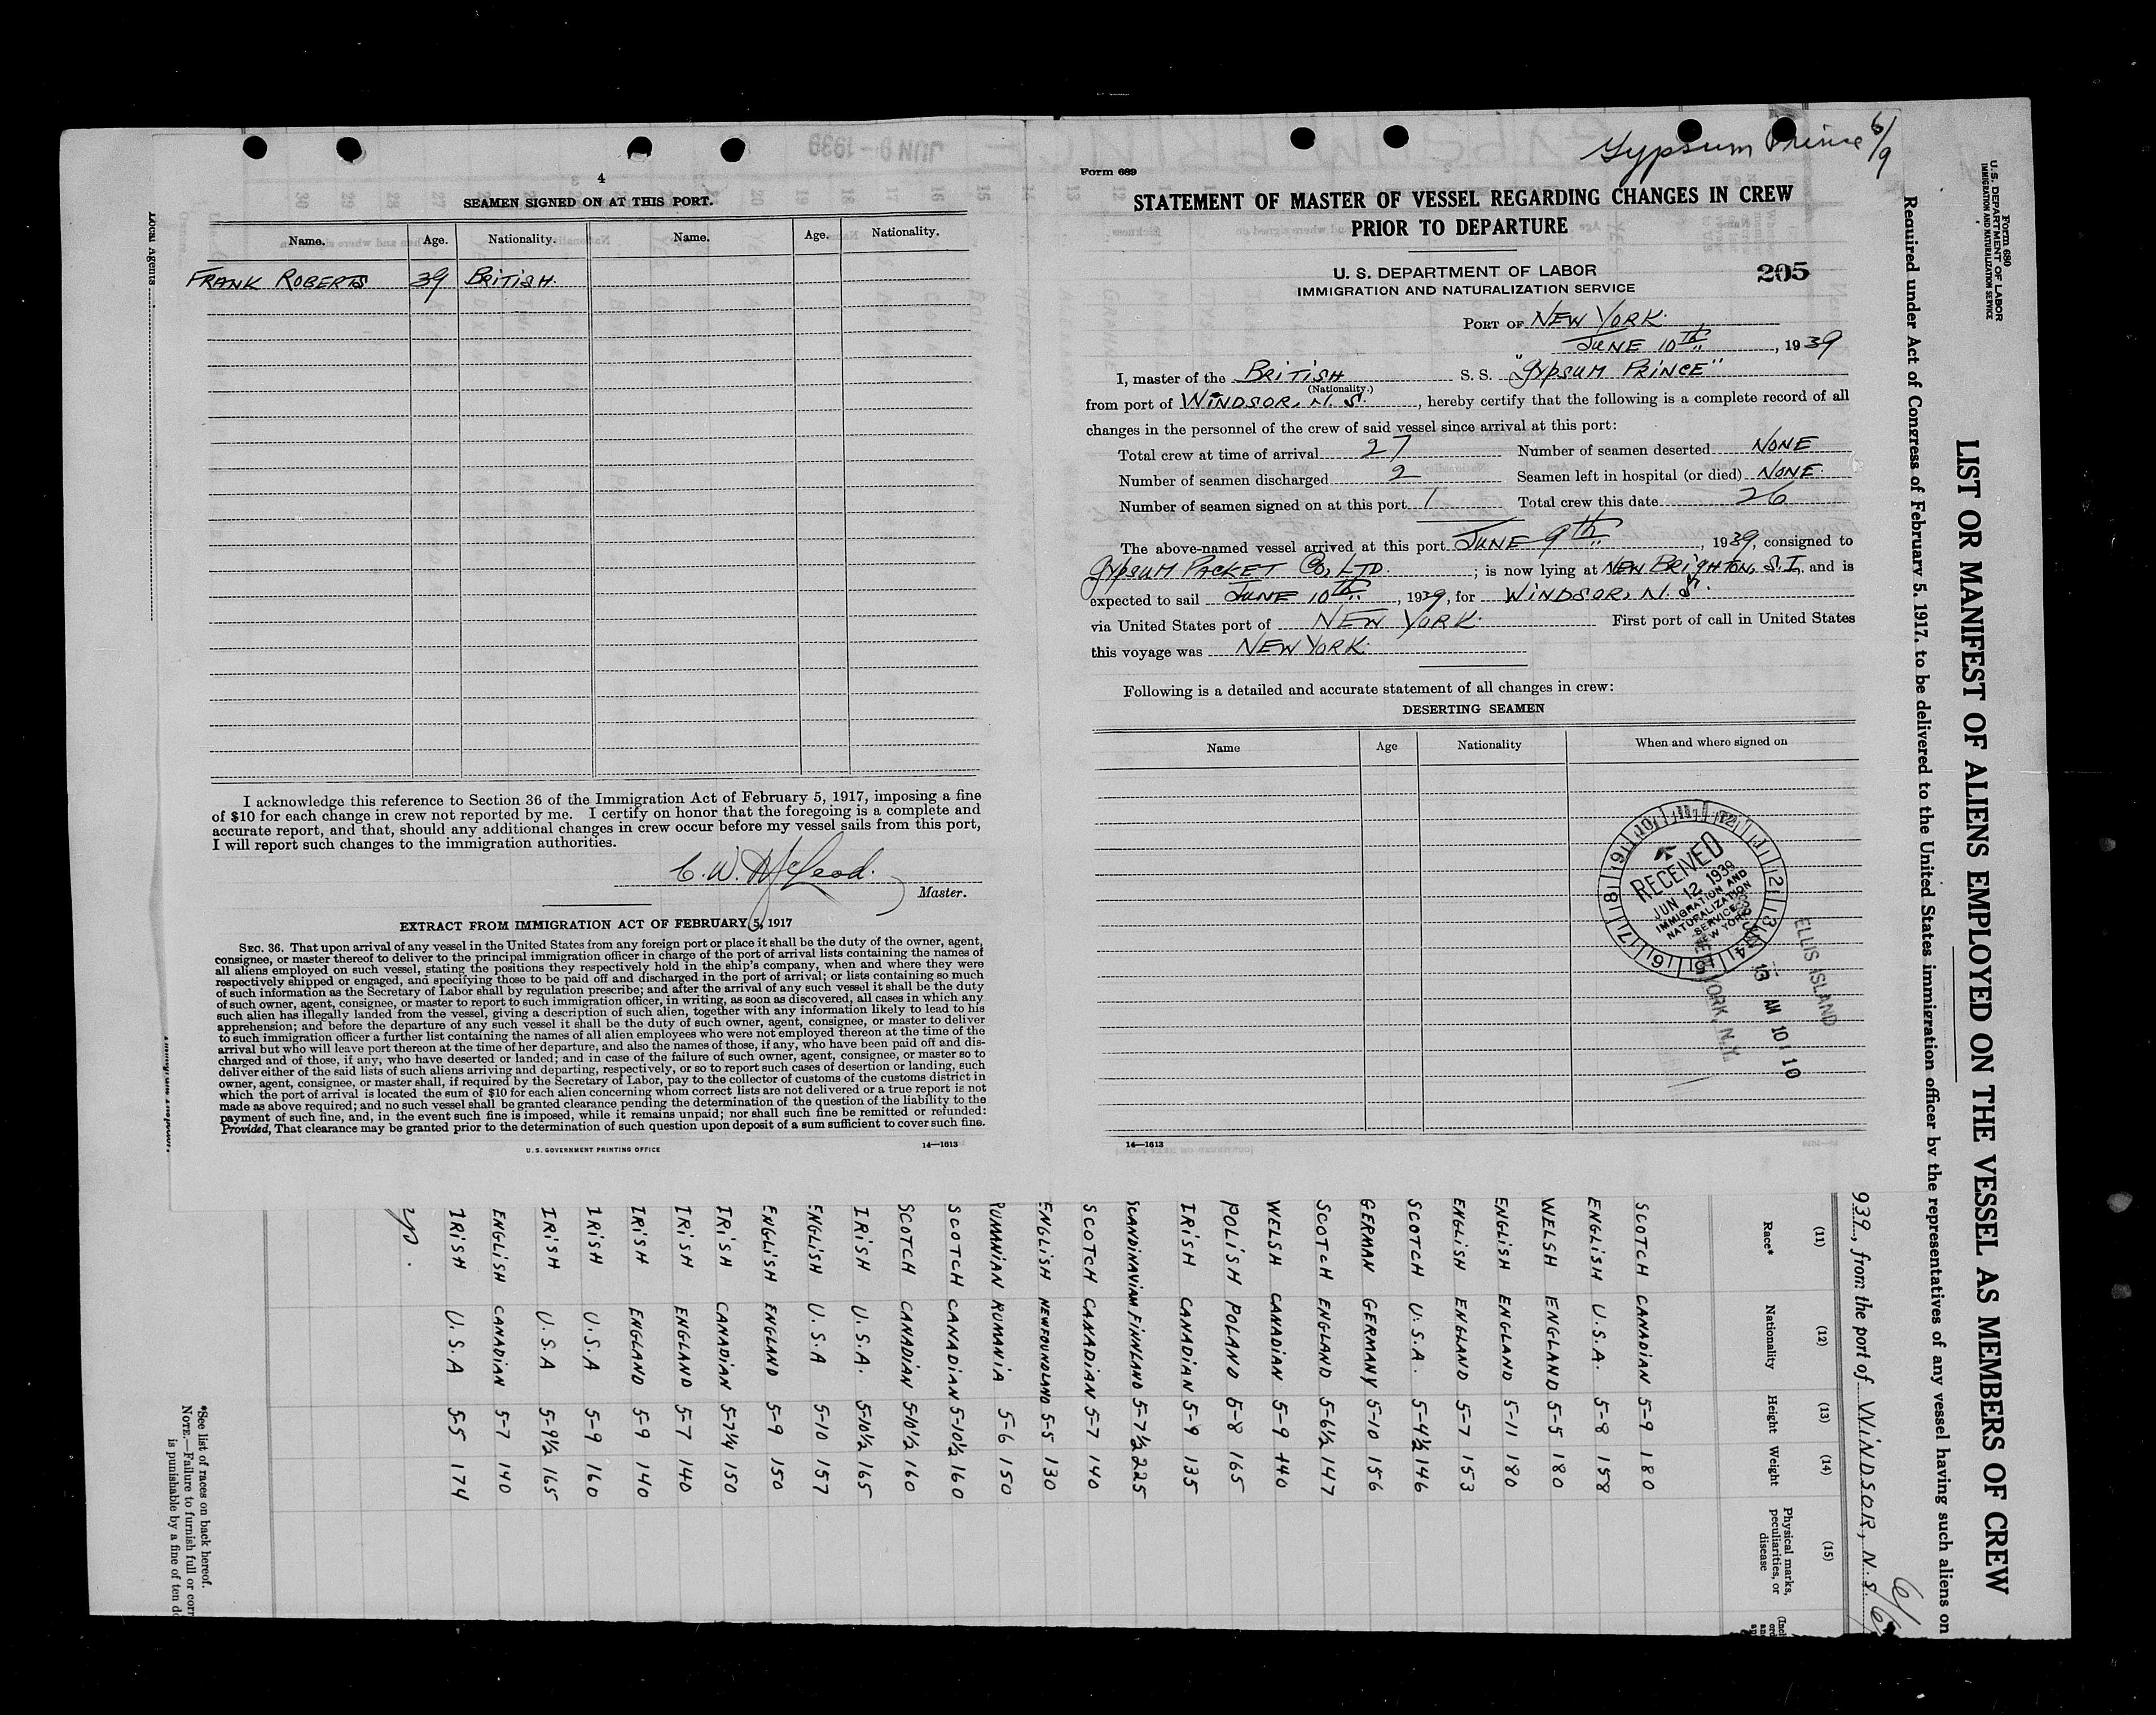 4
SEAMEN SIGNED ON AT THIS PORT.
Name. Age. Nationality. Name. Age. Nationality.
FRANK ROBERTS 39 BRITISH.
I acknowledge this reference to Section 36 of the Immigration Act of February 5, 1917, imposing a fine
of $10 for each change in crew not reported by me. I certify on honor that the foregoing is a complete and
accurate report, and that, should any additional changes in crew occur before my vessel sails from this port,
I will report such changes to the immigration authorities.
C. W. McLeod.
Master.
EXTRACT FROM IMMIGRATION ACT OF FEBRUARY 5, 1917
SEC. 36. That upon arrival of any vessel in the United States from any foreign port or place it shall be the duty of the owner, agent,
consignee, or master thereof to deliver to the principal immigration officer in charge of the port of arrival lists containing the names of
all aliens employed on such vessel, stating the positions they respectively hold in the ship's company, when and where they were
respectively shipped or engaged, and specifying those to be paid off and discharged in the port of arrival; or lists containing so much
of such information as the Secretary of Labor shall by regulation prescribe; and after the arrival of any such vessel it shall be the duty
of such owner, agent, consignee, or master to report to such immigration officer, in writing, as soon as discovered, all cases in which any
such alien has illegally landed from the vessel, giving a description of such alien, together with any information likely to lead to his
apprehension; and before the departure of any such vessel it shall be the duty of such owner, agent, consignee, or master to deliver
to such immigration officer a further list containing the names of all alien employees who were not employed thereon at the time of the
arrival but who will leave port thereon at the time of her departure, and also the names of those, if any, who have been paid off and dis-
charged and of those, if any, who have deserted or landed; and in case of the failure of such owner, agent, consignee, or master so to
deliver either of the said lists of such aliens arriving and departing, respectively, or so to report such cases of desertion or landing, such
owner, agent, consignee, or master shall, if required by the Secretary of Labor, pay to the collector of customs of the customs district in
which the port of arrival is located the sum of $10 for each alien concerning whom correct lists are not delivered or a true report is not
made as above required; and no such vessel shall be granted clearance pending the determination of the question of the liability to the
payment of such fine, and, in the event such fine is imposed, while it remains unpaid; nor shall such fine be remitted or refunded:
Provided, That clearance may be granted prior to the determination of such question upon deposit of a sum sufficient to cover such fine.
U. S. GOVERNMENT PRINTING OFFICE 14—1613
Local Agents
Gypsum Prince 6/9
Form 689
STATEMENT OF MASTER OF VESSEL REGARDING CHANGES IN CREW
PRIOR TO DEPARTURE
U. S. DEPARTMENT OF LABOR
IMMIGRATION AND NATURALIZATION SERVICE
205
PORT OF NEW YORK.
JUNE 10TH, 1939
I, master of the BRITISH S. S. "GYPSUM PRINCE"
(Nationality.)
from port of WINDSOR, N. S., hereby certify that the following is a complete record of all
changes in the personnel of the crew of said vessel since arrival at this port:
Total crew at time of arrival 27 Number of seamen deserted NONE
Number of seamen discharged 2 Seamen left in hospital (or died) NONE
Number of seamen signed on at this port 1 Total crew this date 26
The above-named vessel arrived at this port JUNE 9th, 1939, consigned to
GYPSUM PACKET Co, LTD.; is now lying at NEW BRIGHTON, S. I. and is
expected to sail JUNE 10th, 1939, for WINDSOR, N. S.
via United States port of NEW YORK. First port of call in United States
this voyage was NEW YORK.
Following is a detailed and accurate statement of all changes in crew:
DESERTING SEAMEN
Name Age Nationality When and where signed on
RECEIVED
JUN 12 1939
IMMIGRATION AND
NATURALIZATION
SERVICE
NEW YORK
ELLIS ISLAND
13 AM 10 10
YORK, N.Y.
14—1613
Form 680
U. S. DEPARTMENT OF LABOR
IMMIGRATION AND NATURALIZATION SERVICE
LIST OR MANIFEST OF ALIENS EMPLOYED ON THE VESSEL AS MEMBERS OF CREW
Required under Act of Congress of February 5, 1917, to be delivered to the United States immigration officer by the representatives of any vessel having such aliens on
939, from the port of WINDSOR, N. S.
(11) (12) (13) (14) (15)
Race* Nationality Height Weight Physical marks, peculiarities, or disease
SCOTCH CANADIAN 5-9 180
ENGLISH U.S.A. 5-8 158
WELSH ENGLAND 5-5 180
ENGLISH ENGLAND 5-11 180
ENGLISH ENGLAND 5-7 153
SCOTCH U.S.A. 5-4½ 146
GERMAN GERMANY 5-10 156
SCOTCH ENGLAND 5-6½ 147
WELSH CANADIAN 5-9 140
POLISH POLAND 5-8 165
IRISH CANADIAN 5-9 135
SCANDINAVIAN FINLAND 5-7½ 225
SCOTCH CANADIAN 5-7 140
ENGLISH NEWFOUNDLAND 5-5 130
RUMANIAN RUMANIA 5-6 150
SCOTCH CANADIAN 5-10½ 160
SCOTCH CANADIAN 5-10½ 160
IRISH U.S.A. 5-10½ 165
ENGLISH U.S.A 5-10 157
ENGLISH ENGLAND 5-9 150
IRISH CANADIAN 5-7¼ 150
IRISH ENGLAND 5-7 140
IRISH ENGLAND 5-9 140
IRISH U.S.A 5-9 160
IRISH U.S.A 5-9½ 165
ENGLISH CANADIAN 5-7 140
IRISH U.S.A 5-5 174
*See list of races on back hereof.
NOTE.—Failure to furnish full or corr
is punishable by a fine of ten do